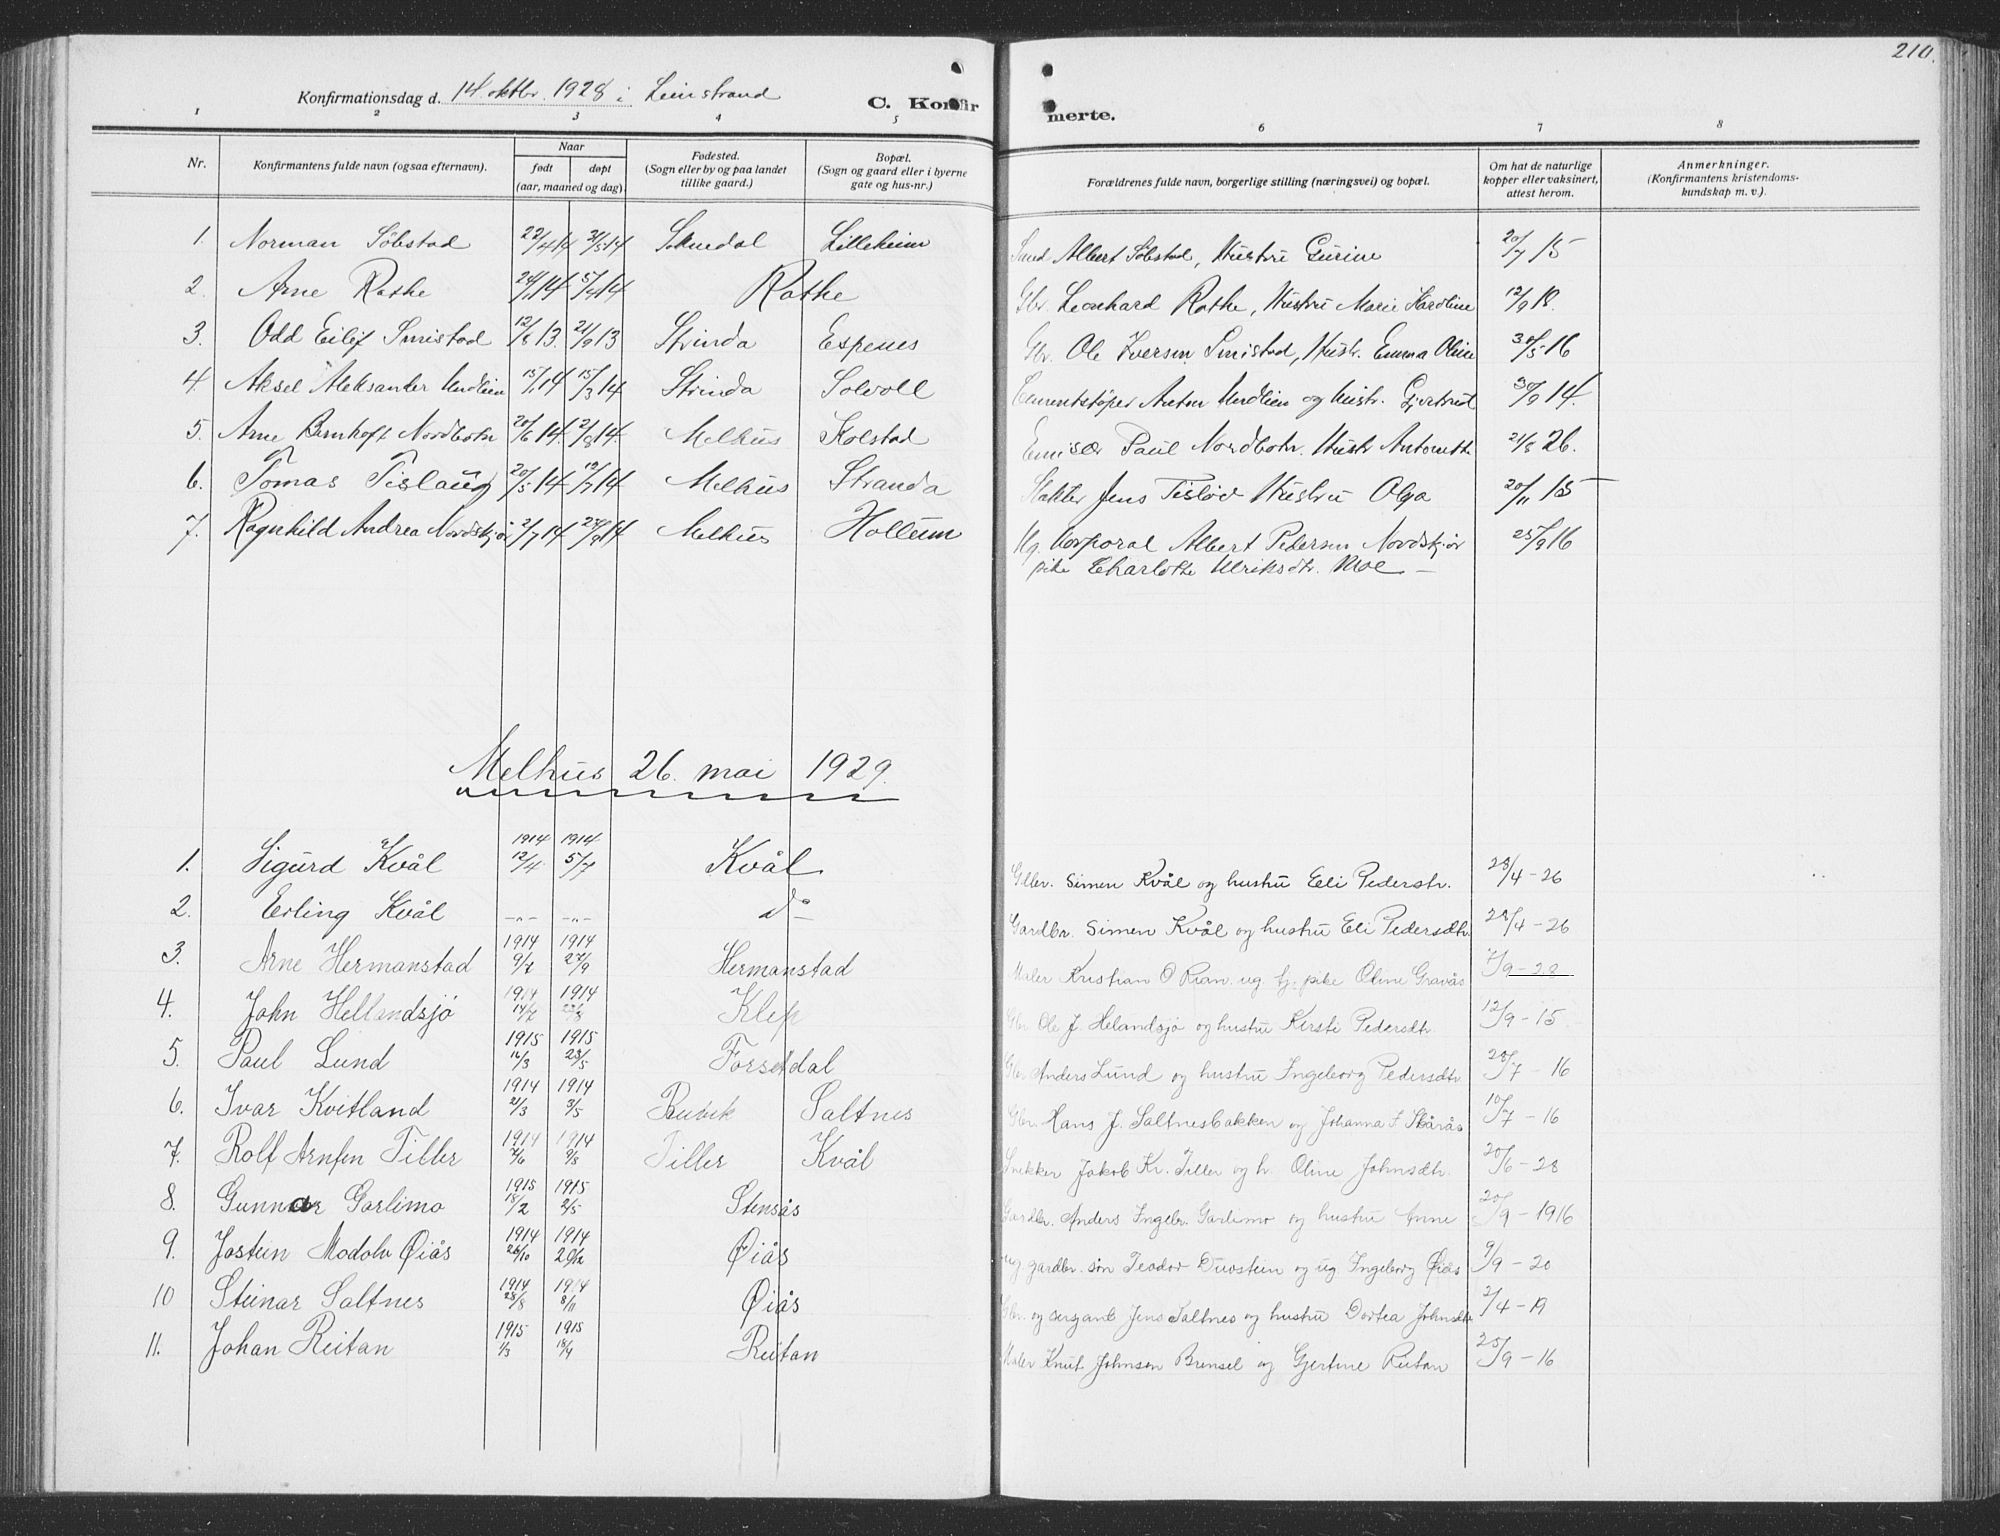 210.
Konfirmationsdag d. 14. oktbr. 1928 i Leinstrand
C. Konfirmerte.
1 2 3 4 5 6 7 8
Nr.
Konfirmantens fulde navn (ogsaa efternavn).
Naar
født døpt
(aar, maaned og dag).
Fødested.
(Sogn eller by og paa landet
tillike gaard.)
Bopæl.
(Sogn og gaard eller i byerne
gate og hus-nr.)
Forældrenes fulde navn, borgerlige stilling (næringsvei) og bopæl.
Om hat de naturlige
kopper eller vaksinert,
attest herom.
Anmerkninger.
(Konfirmantens kristendoms-
kundskap m. v.).
1. Norman Søbstad 22/4 14 31/5 14 Soknedal Lilleheim Albert Søbstad, Hustru Gurine 20/7 15
2. Arne Rathe 14 14 Rathe Gbr. Leonhard Rathe, Hustru Marie Karoline 12/9 18.
3. Odd Eilif Smistad 12/8 13. 21/9 13 Strinda Espenes Gbr. Ole Iversen Smistad, Hustr. Emma Oline 30/5 16
4. Aksel Aleksander 15/1 14 15/3 14 Strinda Solvoll Cementstøper Anton og hustr. Gjertrud 30/9 14.
5. Arne Bernhoft Nordbotn 20/6 14 2/8 14 Melhus Kolstad Paul Nordbotn Hustr 21/8 26.
6. Tomas Tislaug 20/5 14 12/7 14 Melhus Stranda Jens Hustru Olga 20/11 15
7. Ragnhild Andrea Nordskjør 2/7 14 14 Melhus Hollum Ug. Korporal Albert Pedersen Nordskjør 25/9 16
pike Charlotte Ulriksdtr. Moe —
Melhus 26. mai 1929.
1914 1914
1. Sigurd Kvål 12/4 5/7 Kvål Simen Kvål og hustru Eli Pederstr. 28/4 - 26
2. Erling Kvål -"- -"- do Gardbr. Simen Kvål og hustru Eli Pedersdtr. 28/4 - 26
1914 1914
3. Arne Hermanstad 9/7 27/9 Hermanstad Maler Kristian O Rian. ug. pike Oline Gravås 7/9 - 28
1914 1914
4. John Hellandsjö Klep Gbr Ole J. Helandsjö og hustru Kirsti Pedersdtr. 12/9 - 15
1915 1915
5. Paul Lund 14/3 23/5 Forsetdal Gbr. Anders Lund og hustru Ingeborg Pedersdtr 28/7 - 16
1914 1914
6. Ivar Kvitland 21/3 3/5 Buvik Saltnes Gbr. Hans J. Saltnesbakken og Johanna 10/7 - 16
1914 1914
7. Rolf Arnfen Tiller Tiller Kvål Snekker Jakob Kr. Tiller og h. Oline Johnsdtr. 20/6 - 28
1915 1915
8. Gunnar Garlimo 18/2 2/5 Stensås Gardbr. Anders Ingebr. Garlimo og hustru Anne 20/9 - 1916
1914 1914
9. Jostein Modolv Øiås 26/10 20/12 Øiås ug. gardbr. søn Teodor Duostein og ug. Ingeborg Øiås 9/9 - 20
1914 1914
10 Steinar Saltnes 28/8 8/11 Øiås Gbr. og sergant Jens Saltnes og hustru Dortea Johnsdtr 2/4 - 19
1915 1915
11. Johan Reitan 1/3 18/4 Reitan Maler Knut Johnsen Brensel og Gjertine Reitan 25/9 - 16